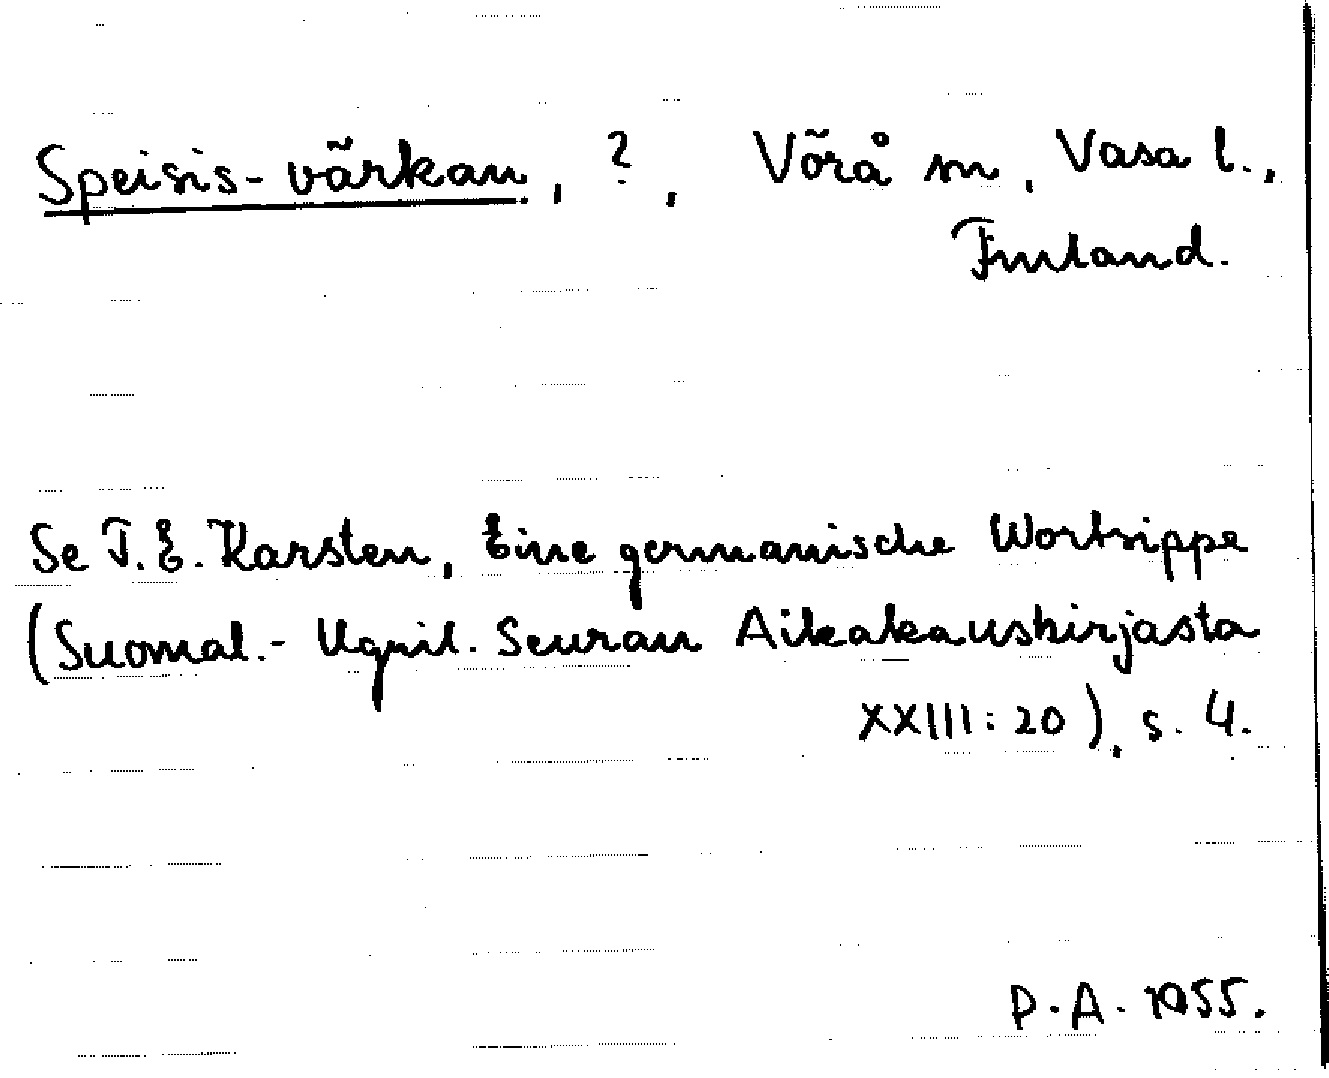 Speisis-värkan, ?, Vörå sn, Vasa l.,
Finland.
Se T.E. Karsten, Eine germanische Wortsippe
(Suomal.- Ugril. Seuran Aikakauskirjasta
XXIII:20), s. 4.
P.A. 1955.